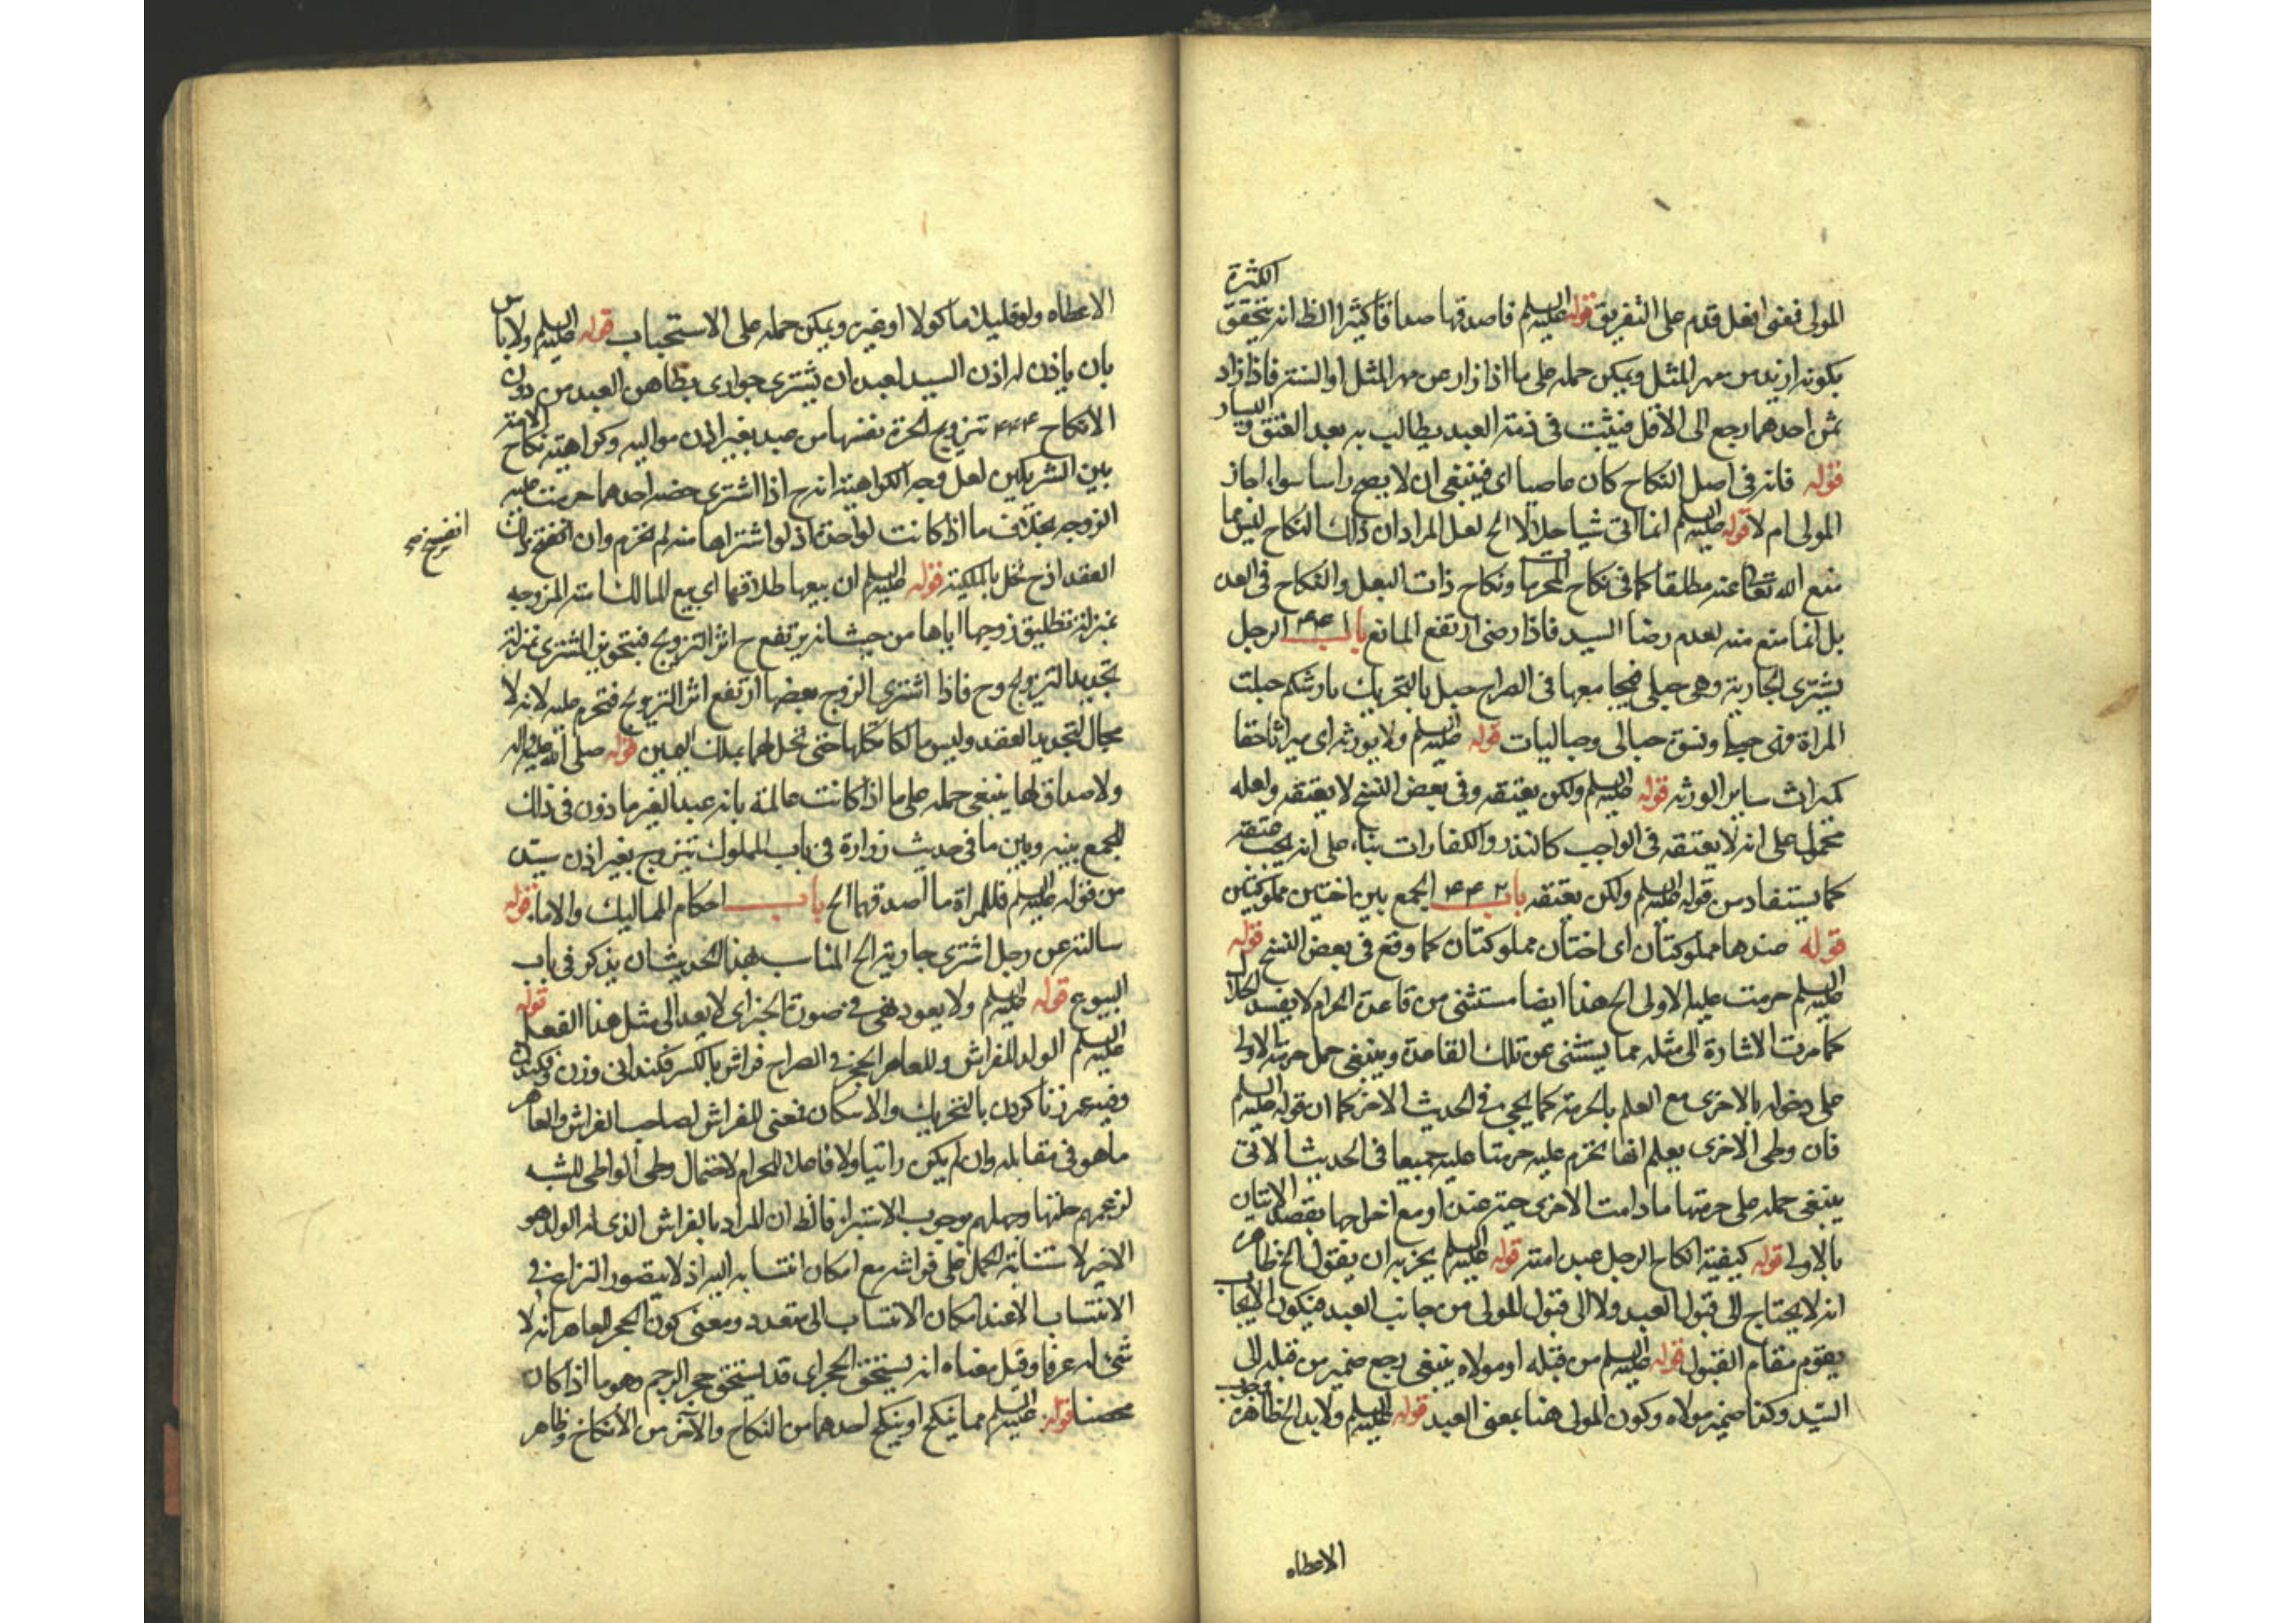 المولى فنفى افعل قدم على التفريق قوله عليه السلم فاصدقها صداقا كثيرا الظ انه يتحقق الكثرة
بكونه ازيد من مهر المثل ويمكن حمله على ما اذا زاد عن مهر المثل او السنة فاذا زاد
ثمن احدهما رجع الى الاقل فيثبت في ذمة العبد يطالب به بعد العتق واليسار
قوله فانه في اصل النكاح كان عاصيا اى فينبغى ان لا يصح راسا سواء اجاز
المولى ام لا قوله عليه السلم انما اتى شيا حلالا الخ لعل المراد ان ذلك النكاح ليس مما
منع الله تعا عنه مطلقا كما في نكاح المحرمات ونكاح ذات البعل والنكاح في العدة
بل انما منع منه لعدم رضا السيد فاذا رضى ارتفع المانع باب ۴۴۱ الرجل
يشترى الجارية وهى حبلى فيجامعها في الصراح حبل بالتحريك بارشكم حبلت
المراة فهى حبلى ونسوة حبالى وحباليات قوله عليه السلم ولا يورثه اى ميراثا حقا
كميراث ساير الورثه قوله عليه السلم ولكن يعتقه وفى بعض النسخ لا يعتقه ولعله
محمول على انه لا يعتقه في الواجب كالنذر والكفارات بناء على انه يجب عتقه
كما يستفاد من قوله عليه السلم ولكن يعتقه باب ۴۴۲ الجمع بين اختين مملوكتين
قوله عندها مملوكتان اى اختان مملوكتان كما وقع في بعض النسخ قوله
عليه السلم حرمت عليه الاولى الخ هذا ايضا مستثنى من قاعدة الحرام لا يفسد الحلال
كما مرت الاشارة الى مثله مما يستثنى عن تلك القاعدة وينبغى حمل حرمة الاولى
على دخوله بالاخرى مع العلم بالحرمة كما يجئ في الحديث الاخر كما ان قوله عليه السلم
فان وطى الاخرى يعلم انها تحرم عليه حرمتا عليه جميعا في الحديث الاتى
ينبغى حمله على حرمتها ما دامت الاخرى حية عنده او مع اخراجها بقصد الاتيان
بالاولى قوله كيفية انكاح الرجل عبده امته قوله عليه السلم يجزيه ان يقول الخ ظاهره
انه لا يحتاج الى قبول العبد ولا الى قبول المولى من جانب العبد فيكون الايجاب
يقوم مقام القبول قوله عليه السلم من قبله او مولاه ينبغى رجع ضمير من قبله الى
السيد وكذا ضمير مولاه وكون المولى هنا بمعنى العبد قوله عليه السلم ولا بد الخ ظاهره وجوب
الاعطاه
الاعطاه ولو قليلا ماكولا او غيره ويمكن حمله على الاستحباب قوله عليه السلم ولا باس
بان ياذن له اذن السيد لعبده ان يشترى جوارى يطاهن العبد من دون
الانكاح ۴۴۴ تزويج الحرة نفسها من عبد بغير اذن مواليه وكراهية نكاح الامة
بين الشريكين لعل وجه الكراهية انه ح اذا اشترى حصه احدهما حرمت عليه
الزوجه بخلاف ما اذا كانت لواحد اذ لو اشتراها منه لم تحرم وان انفتح ذلك
انفسخ صح
العقد اذ ح تحل بالملكية قوله عليه السلم ان بيعها طلاقها اى بيع المالك امته المزوجه
بمنزلة تطليق زوجها اياها من حيث انه يرتفع ح اثر التزويج فتجويز المشترى بمنزلة
تجديد التزويج وح فاذا اشترى الزوج بعضها ارتفع اثر التزويج فتحرم عليه لانه لا
مجال لتجديد العقد وليس مالكا لكلها حتى تحل لهما بملك اليمين قوله صلى الله عليه واله
ولا صداق لها ينبغى حمله على ما اذا كانت عالمة بانه عبد الغير ماذون في ذلك
للجمع بينه وبين ما في حديث زرارة في باب المملوك يتزوج بغير اذن سيده
من قوله عليه السلم فللمراة ما اصدقها الخ باب احكام المماليك والاماء قوله
سالته عن رجل اشترى جارية الخ المناسب هذا الحديث ان يذكر في باب
البيوع قوله عليه السلم ولا يعود نهى في صورة الخبر اى لا يعد الى مثل هذا الفعل قوله
عليه السلم الولد للفراش وللعاهر الحجر في الصراح فراش بالكسر فكندانى وزن
وفيه عهر زنا كردن بالتحريك والاسكان فمعنى للفراش لصاحب الفراش والعاهر
ما هو في مقابله وان لم يكن زانيا ولا فاعلا للحرام لاحتمال وطى الواطى للشبه
لزعمهم حلتها وجهلهم بوجوب الاستبراء فالظ ان المراد بالفراش الذى له الولد هو
الاخير لاستنابة الحمل على فراشه مع امكان انتسابه اليه اذ لا يتصور النزاع في
الانتساب الا عند امكان الانتساب الى متعدد ومعنى كون الحجر للعاهر انه لا
شئ له عرفا وقيل معناه انه يستحق الحجر اى قد يستحق حجر الرجم وهو ما اذا كان
محصنا قوله عليه السلم مما ينكح او ينكح احدهما من النكاح والآخر من الانكاح وظاهر